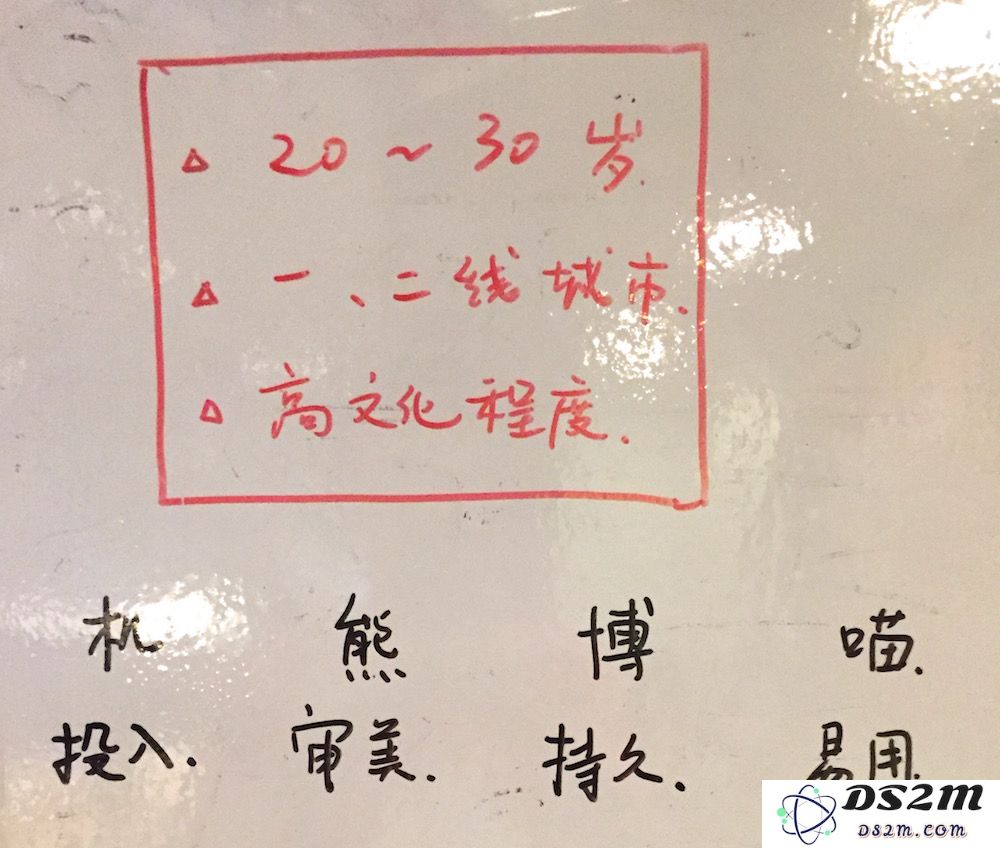 △ 20~30岁.
△ 一、二线城市.
△ 高文化程度.
机 熊 博 喵.
投入. 审美. 持久. 易用.
DS2M
DS2M.COM